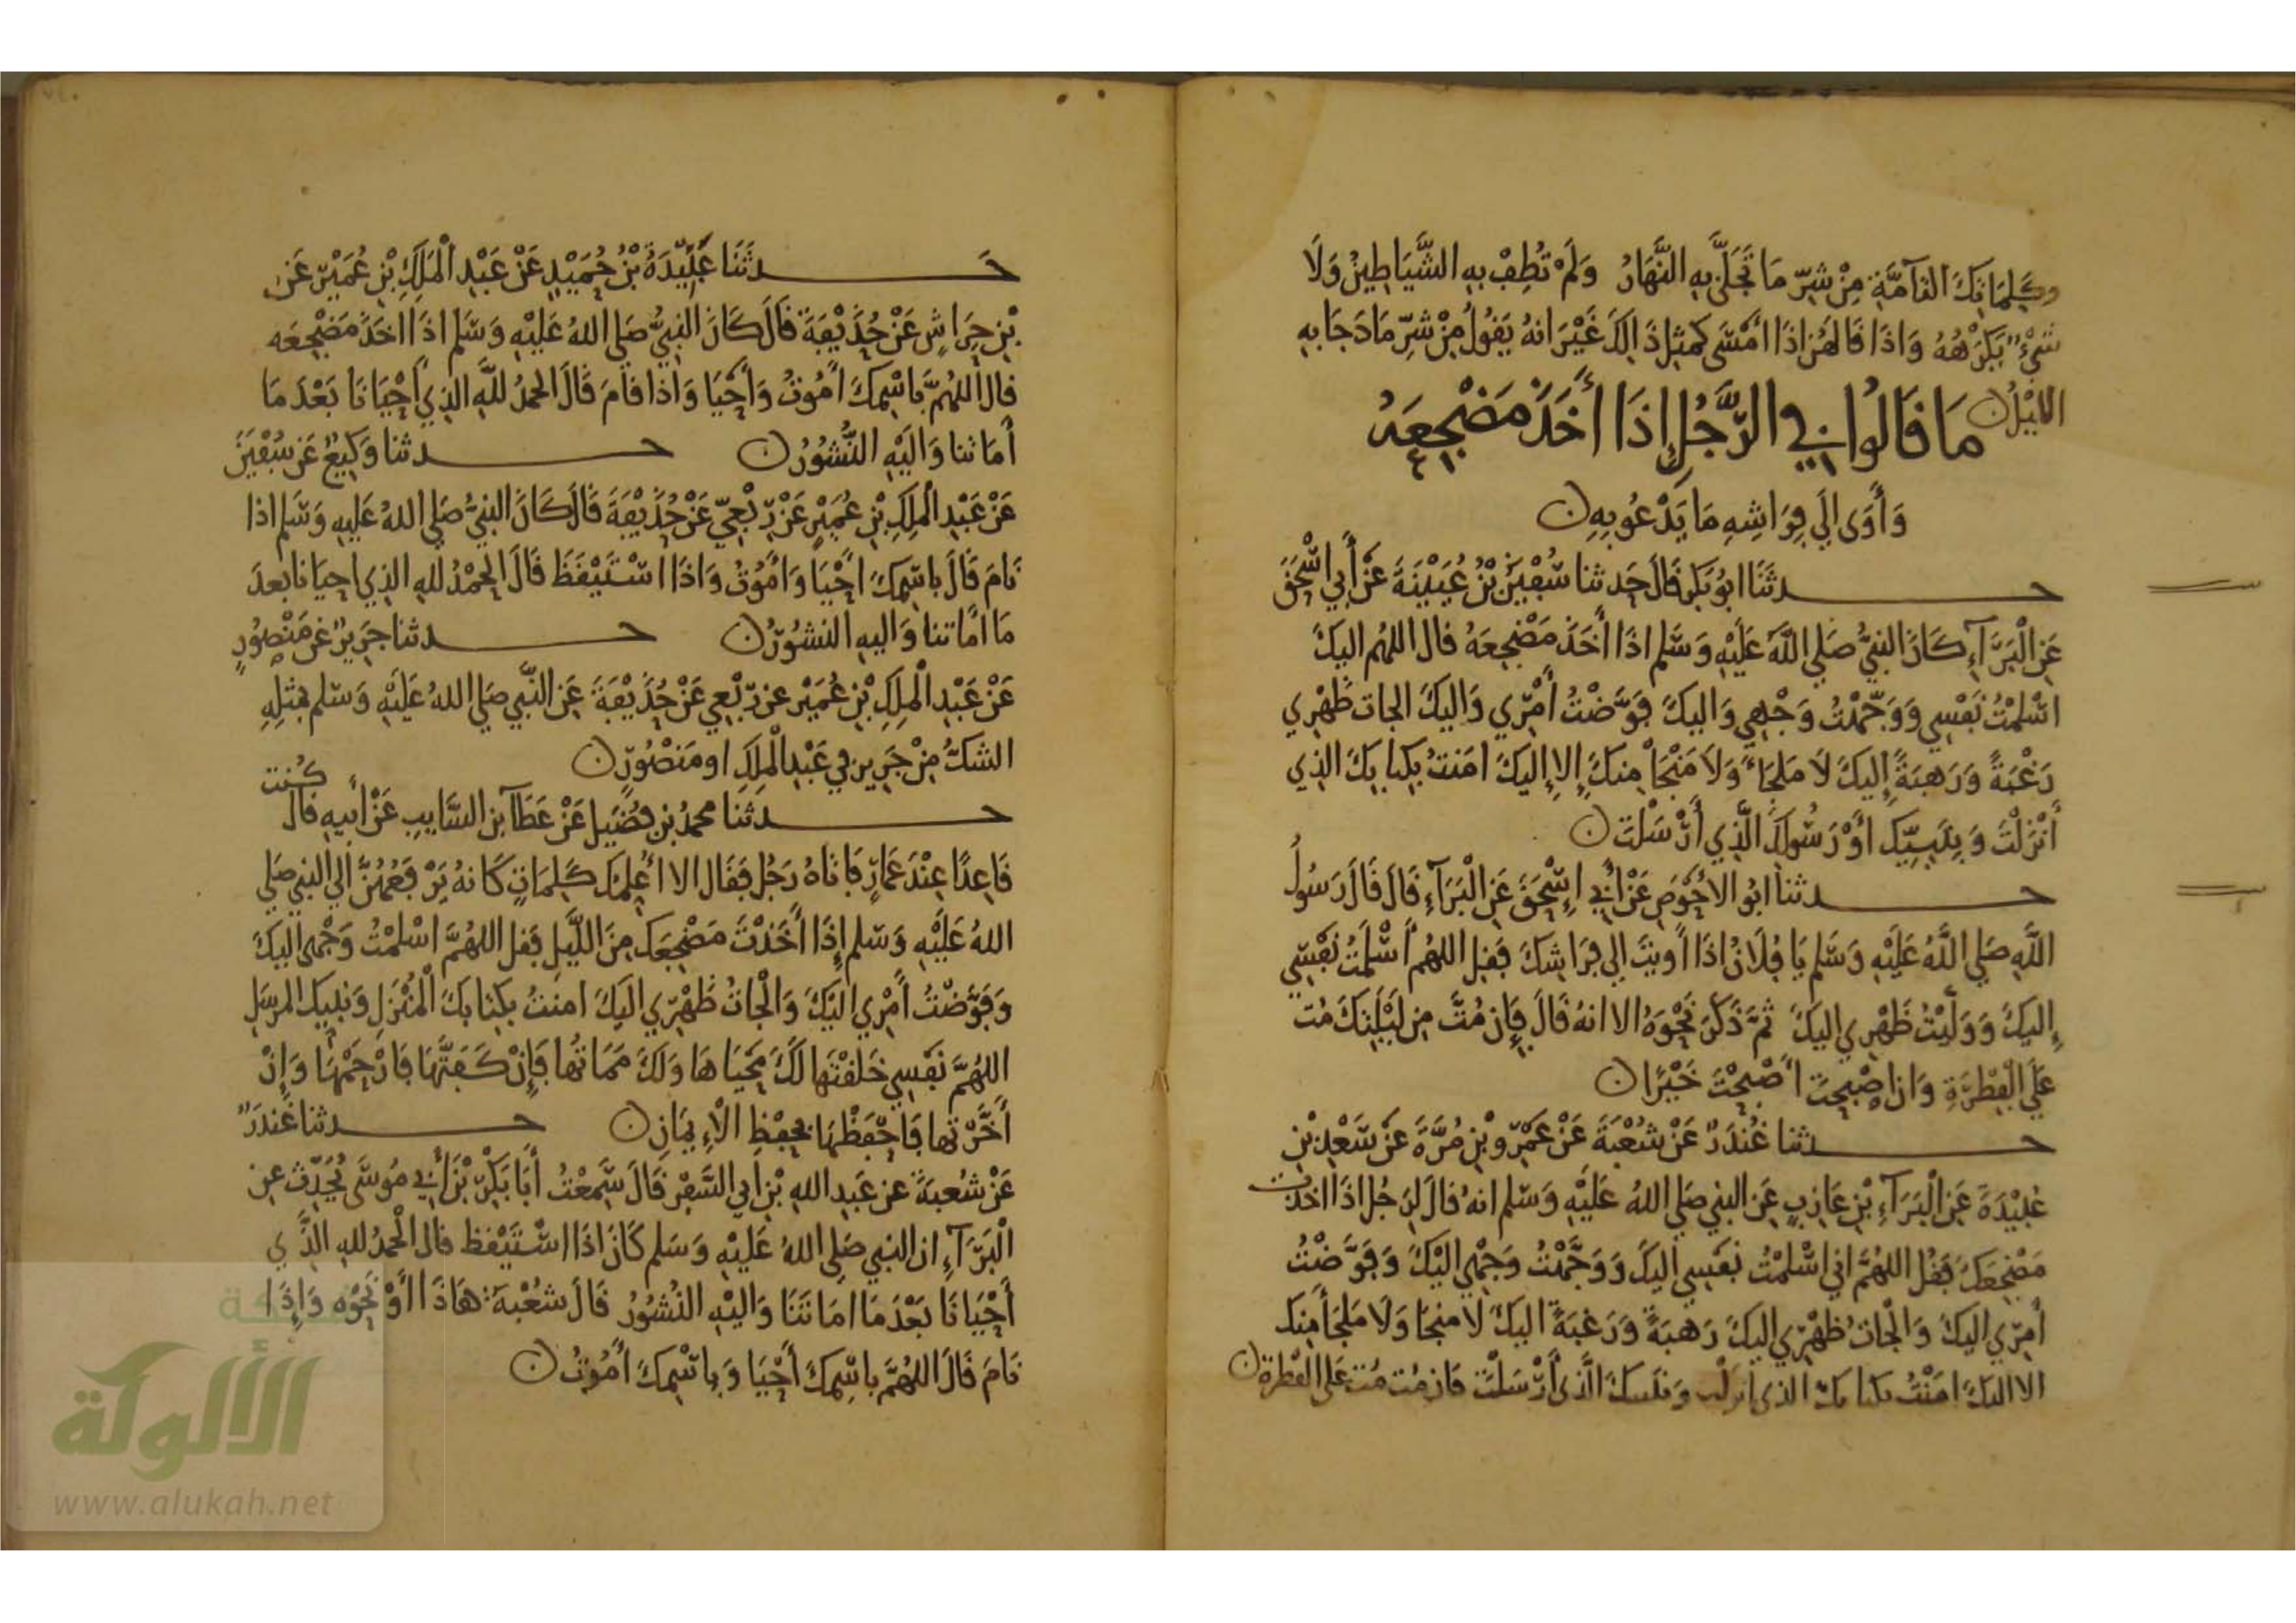 وَكَلِمَاتِكَ التَّآمَّةِ مِنْ شَرِّ مَا تَجَلَّى بِهِ النَّهَارُ وَلَمْ تُطِفْ بِهِ الشَّيَاطِينُ وَلَا
شَيْءٌ يَكْرَهُهُ وَاذَا قَالَهُنَّ اذَا أَمْسَى كَمِثْلِ ذَالِكَ غَيْرَ انهُ يَقُولُ مِنْ شَرِّ مَا دَجَا بِهِ
الليْلُ
مَا قَالُوا فِي الرَّجُلِ إِذَا أَخَذَ مَضْجَعَهُ
وَأَوَى إِلَى فِرَاشِهِ مَا يَدْعُو بِهِ
حدثَنَا ابُو بَكرٍ قَالَ حَدثنا سُفْيَنُ بْنُ عُيَيْنَةَ عَنْ أَبِي اسْحَقَ
عَنِ الْبَرَآءِ كَانَ النبِيُّ صَلى اللَّهُ عَلَيْهِ وَسَّلم اذَا أَخَذَ مَضْجَعَهُ قال اللهُم اليكَ
اسْلَمْتُ نَفْسِي وَوَجَّهْتُ وَجْهِي وَاليكَ فَوَّضْتُ أَمْرِي وَاليكَ الجات ظَهْرِي
رَغْبَةً وَرَهبَةً إِليكَ لَا مَلْجَاءَ وَلَا مَنْجَا مِنكَ إِلا إِليكَ امَنتُ بِكِتابِكَ الذِي
أَنْزَلْتَ وَبِنَبِيِّكَ أَوْ رَسُولِكَ الَّذِي أَرْسَلْتَ
حدثنا ابُو الاحْوَصِ عَنْ أَبِي إِسْحَقَ عَنِ الْبَرَآءِ قَالَ قَالَ رَسُولُ
اللَّهِ صَلى اللَّهُ عَلَيْهِ وَسَّلم يَا فُلَانُ اذَا أَويتَ الى فِرَاشِكَ فَقل اللهُم أَسْلَمتُ نَفْسِي
إِليكَ وَوَلَّيْتُ ظَهْرِي اليكَ ثمَّ ذَكَرَ نَحْوَهُ الا انهُ قَالَ فَإِن مُتَّ مِن لَيْلَتِكَ مُت
عَلَى الْفِطْرَةِ وَان اصْبحتَ اصْبَحْتَ خَيْرًا
حدثنا غُنْدَرٌ عَنْ شُعْبَةَ عَنْ عَمْرِو بْنِ مُرَّةَ عَنْ سَعْدِ بْنِ
عُبَيْدَةَ عَنِ الْبَرَآءِ بْنِ عَازِبٍ عَنِ النبِي صَلى اللهُ عَلَيْهِ وَسّلم انهُ قالَ لِرَجُلٍ اذَا اخذت
مَضْجَعَكَ فَقُل اللهُمَّ اني اسْلمْتُ نفسِي اليكَ وَوَجَّهْتُ وَجْهِي اليْكَ وَفَوَّضْتُ
أَمرِي اليكَ وَالْجات ظَهْرِي اليكَ رَهبَةً وَرَغبَةً اليكَ لَا منجَا وَلَا مَلجَأَ مِنك
الا اليكَ امَنْتُ بكتابكَ الذى انزلت وبنبيكَ الَّذى أَرْسَلْتَ فان مُت مُت عَلى الفطرة
حَدثَنَا عَبِيدَةُ بْنُ حُمَيْدٍ عَنْ عَبْدِ الْمَلِكِ بْنِ عُمَيْرٍ عَن
بْنِ حِرَاشٍ عَنْ حُذَيْفَةَ قَالَ كَانَ النبِيُّ صَلى اللهُ عَلَيْهِ وَسَّلم اذَا اخَذَ مَضْجَعَه
قال اللهُمَّ بِاسْمِكَ أَمُوتُ وَأَحْيَا وَاذا قَامَ قَالَ الحمدُ للهِ الذِي أَحْيَانَا بَعْدَ مَا
أَمَاتنا وَالَيْهِ النُّشُورُ حدثنا وَكِيعٌ عَن سُفْيَنَ
عَنْ عَبْدِ الْمَلِكِ بْنِ عُمَيْرٍ عَنْ رِبْعِيّ عَنْ حُذَيْفَةَ قَالَ كَانَ النبيُّ صَلى اللهُ عَليهِ وَسَّلم اذا
نَامَ قَالَ باسْمِكَ احْيَا وَامُوْتُ وَاذَا اسْتَيْقَظَ قَالَ الحمْدُ للهِ الذِي احيَانا بعدَ
مَا امَاتنا وَاليهِ النشُوْرُ حدثنا جَرِيرٌ عَنْ مَنْصُورٍ
عَنْ عَبْدِ الْمَلِكِ بْنِ عُمَيْر عن رِبْعي عَنْ حُذَيْفَةَ عَنِ النَّبِي صَلى اللهُ عَلَيْهِ وَسَلم بمثلِهِ
الشكُّ مِنْ جَرِيرٍ في عَبْدِ الْمَلِكِ او مَنْصُورٍ
حدثنا محمدُ بْن فُضَيل عَنْ عَطَآ بن السَّايِبِ عَنْ أَبيهِ قال كُنت
قَاعِدًا عِنْدَ عَمَّارٍ فَاتاهُ رَجُل فَقَال الا أُعلِّمكَ كَلِمَاتٍ كَانهُ يَرْفَعُهُنَّ الى النبِي صَلى
اللهُ عَلَيْهِ وَسّلم إِذَا أَخَذْتَ مَضْجَعَكَ مِنَ اللَّيلِ فَقل اللهُمَّ اسْلمْتُ وَجْهى اليكَ
وَفَوَّضْتُ أَمْرِي اليْكَ وَالْجاتُ ظَهْرِي اليَكَ امنتُ بكِتابكَ الْمُنْزَلِ وَنبيكَ المرسَلِ
اللهُمَّ نَفْسِي خَلَقْتَها لكَ مَحْيَاهَا وَلَكَ مَمَاتُها فَإِنْ كَفَتَّهَا فَارْحَمْهَا وَإِنْ
أَخَّرْتها فَاحْفَظْهَا بحِفْظِ الْإِيمَانِ حدثنا غُندَرٌ
عَنْ شُعبَةَ عن عَبدِ اللهِ بْنِ ابي السَّفَرِ قَالَ سَمِعْتُ أَبَا بَكْرِ بْنَ أَبِي مُوسَى يُحَدِّث عن
الْبَرَآءِ ان النبِي صَلى اللهُ عَلَيْهِ وَسَلم كَانَ اذَا اسْتَيْقظ قال الْحَمْدُ للهِ الذِّي
أَحْيَانَا بَعْدَ مَا امَاتَنَا وَاليْهِ النُشُوُرُ قَالَ شُعْبَةُ هَاذَا اأَوْ نَحْوَه وَإِذَا
نَامَ قَالَ اللهُمَّ باسْمِكَ أَحْيَا وَبِاسْمِكَ أَمُوتُ
الألوكة
www.alukah.net